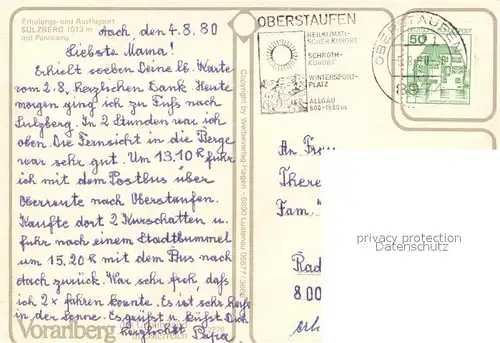 Erholungs- und Ausflugsort
SULZBERG 1013 m
mit Panorama
Aach, den 4.8.80
Liebste Mama!
Erhielt soeben Deine lb. Karte
vom 2.8. Herzlichen Dank. Heute
morgen ging ich zu Fuß nach
Sulzberg. In 2 Stunden war ich
oben. Die Fernsicht in die Berge
war sehr gut. Um 13.10 R fuhr
ich mit dem Postbus über
Oberreute nach Oberstaufen.
Kaufte dort 2 Kurschatten u.
fuhr nach einem Stadtbummel
um 15.20 R mit dem Bus nach
Aach zurück. War sehr froh, daß
ich 2x fahren konnte. Es ist sehr heiß
in der Sonne. Es grüßt u. küßt Dich
herzlichst Papa
Vorarlberg
Österreich
Copyright by Werbeverlag Hagen - 6890 Lustenau 05577/
OBERSTAUFEN
HEILKLIMATI-
SCHER KURORT
SCHROTH-
KURORT
WINTERSPORT-
PLATZ
ALLGÄU
800-1880 m
OBERSTAUFEN
8974
50
An Frau
There
Fam.
Rad
800
privacy protection
Datenschutz